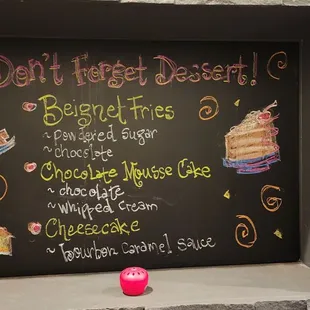 Don't Forget Dessert!
Beignet Fries
~ powdered sugar
~ chocolate
Chocolate Mousse Cake
~ chocolate
~ whipped cream
Cheesecake
~ bourbon caramel sauce